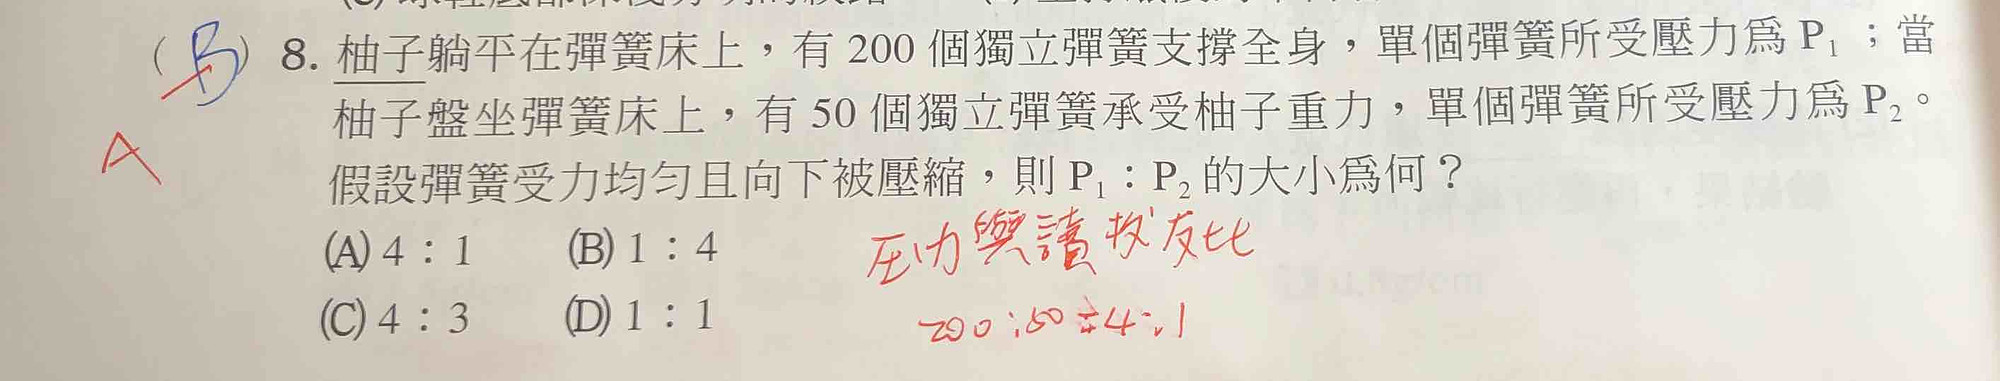 (B) 8. 柚子躺平在彈簧床上，有 200 個獨立彈簧支撐全身，單個彈簧所受壓力為 P₁；當
柚子盤坐彈簧床上，有 50 個獨立彈簧承受柚子重力，單個彈簧所受壓力為 P₂。
A
假設彈簧受力均勻且向下被壓縮，則 P₁：P₂ 的大小為何？
(A) 4：1 (B) 1：4
壓力與讀 反比
(C) 4：3 (D) 1：1
200:50=4:1